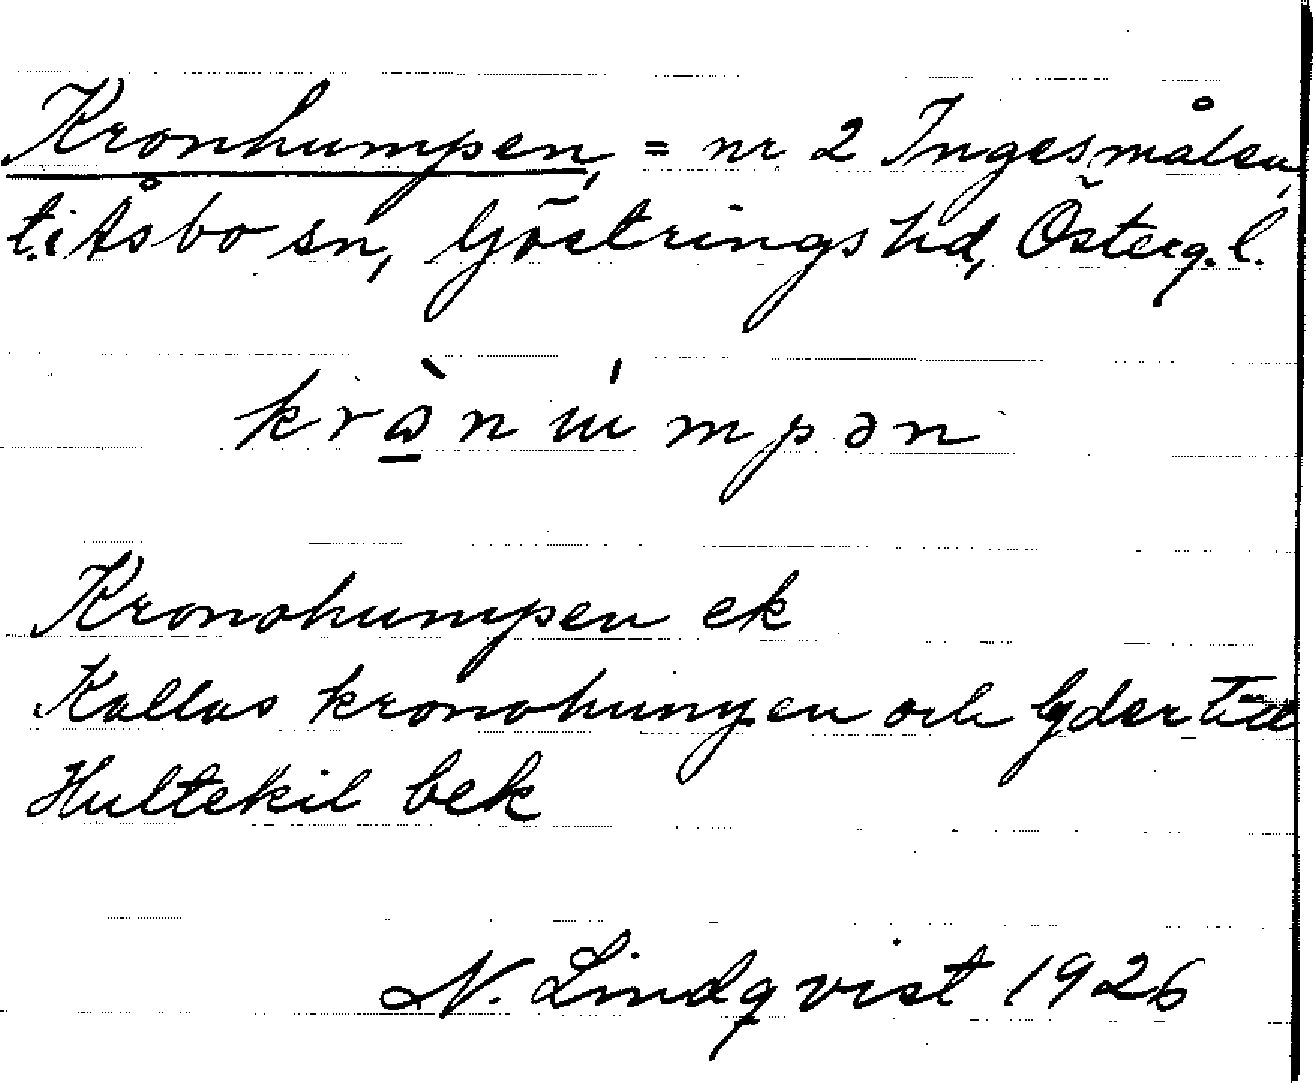 Kronhumpen, = nr 2 Ingesmålen,
t.i Åsbo sn, Göstrings hd, Österg. l.
krɷ̀nu̇́mpən
Kronohumpen ek
Kallas kronohumpen och lyder till
Hultekil bek
N. Lindqvist 1926